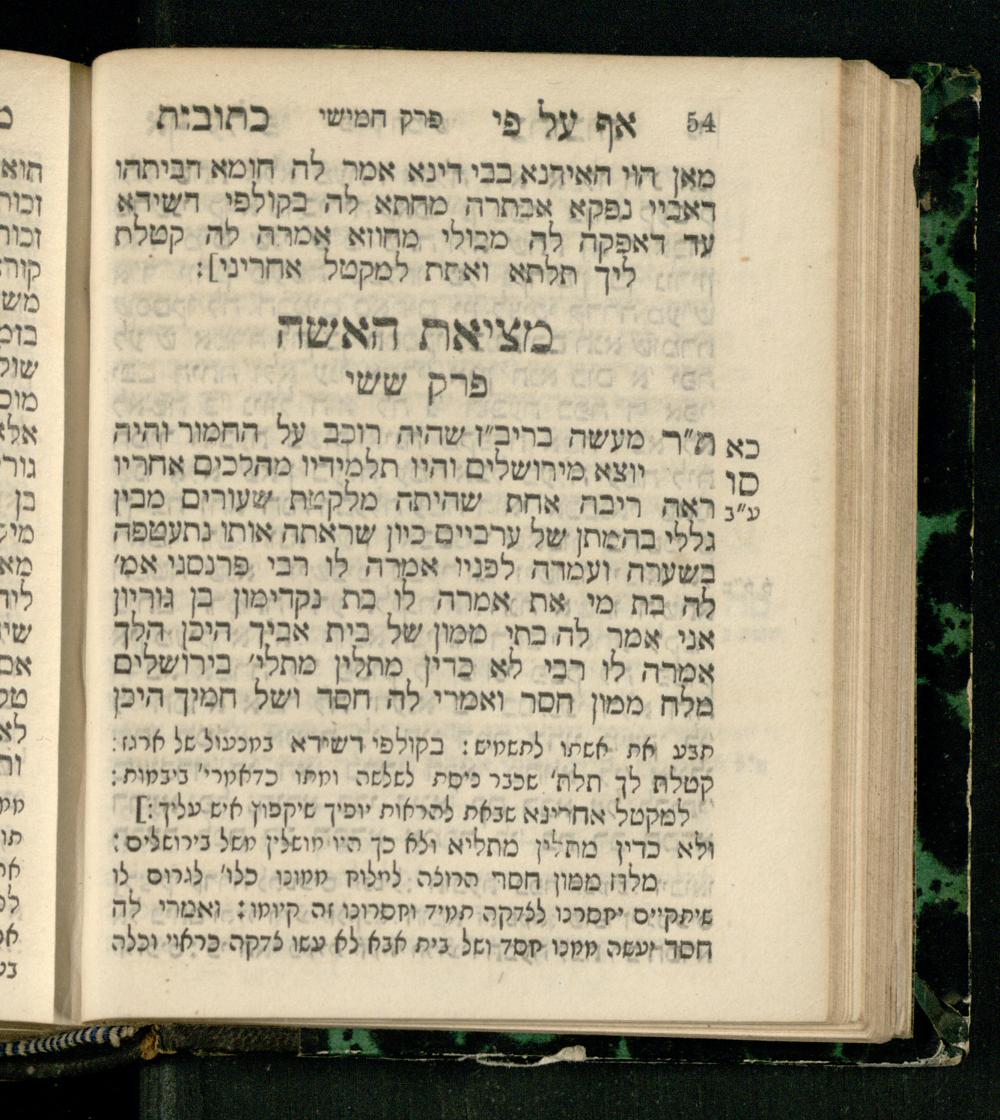 54 אף על פי פרק חמישי כתובות
מאן הוי האידנא בבי דינא אמר לה חומא דביתהו
דאביי נפקא אבתרה מחתא לה בקולפי דשידא
עד דאפקה לה מכולי מחוזא אמרה לה קטלת
ליך תלתא ואתת למקטל אחריני]:
מציאת האשה
פרק ששי
כא ת״ר מעשה בריב״ז שהיה רוכב על החמור והיה
סו יוצא מירושלים והיו תלמידיו מהלכים אחריו
ע״ב ראה ריבה אחת שהיתה מלקטת שעורים מבין
גללי בהמתן של ערביים כיון שראתה אותו נתעטפה
בשערה ועמדה לפניו אמרה לו רבי פרנסני אמ׳
לה בת מי את אמרה לו בת נקדימון בן גוריון
אני אמר לה בתי ממון של בית אביך היכן הלך
אמרה לו רבי לא כדין מתלין מתלי׳ בירושלים
מלח ממון חסר ואמרי לה חסד ושל חמיך היכן
תבע את אשתו לתשמיש: בקולפי דשידא במנעול של ארגז:
קטלת לך תלת׳ שכבר ניסת לשלשה ומתו כדאמרי׳ ביבמות:
למקטל אחרינא שבאת להראות יופיך שיקפוץ איש עליך:]
ולא כדין מתלין מתליא ולא כך היו מושלין משל בירושלים:
מלח ממון חסר הרוצה למלוח ממונו כלו׳ לגרום לו
שיתקיים יחסרנו לצדקה תמיד וחסרונו זה קיומו: ואמרי לה
חסד יעשה ממנו חסד ושל בית אבא לא עשו צדקה כראוי וכלה